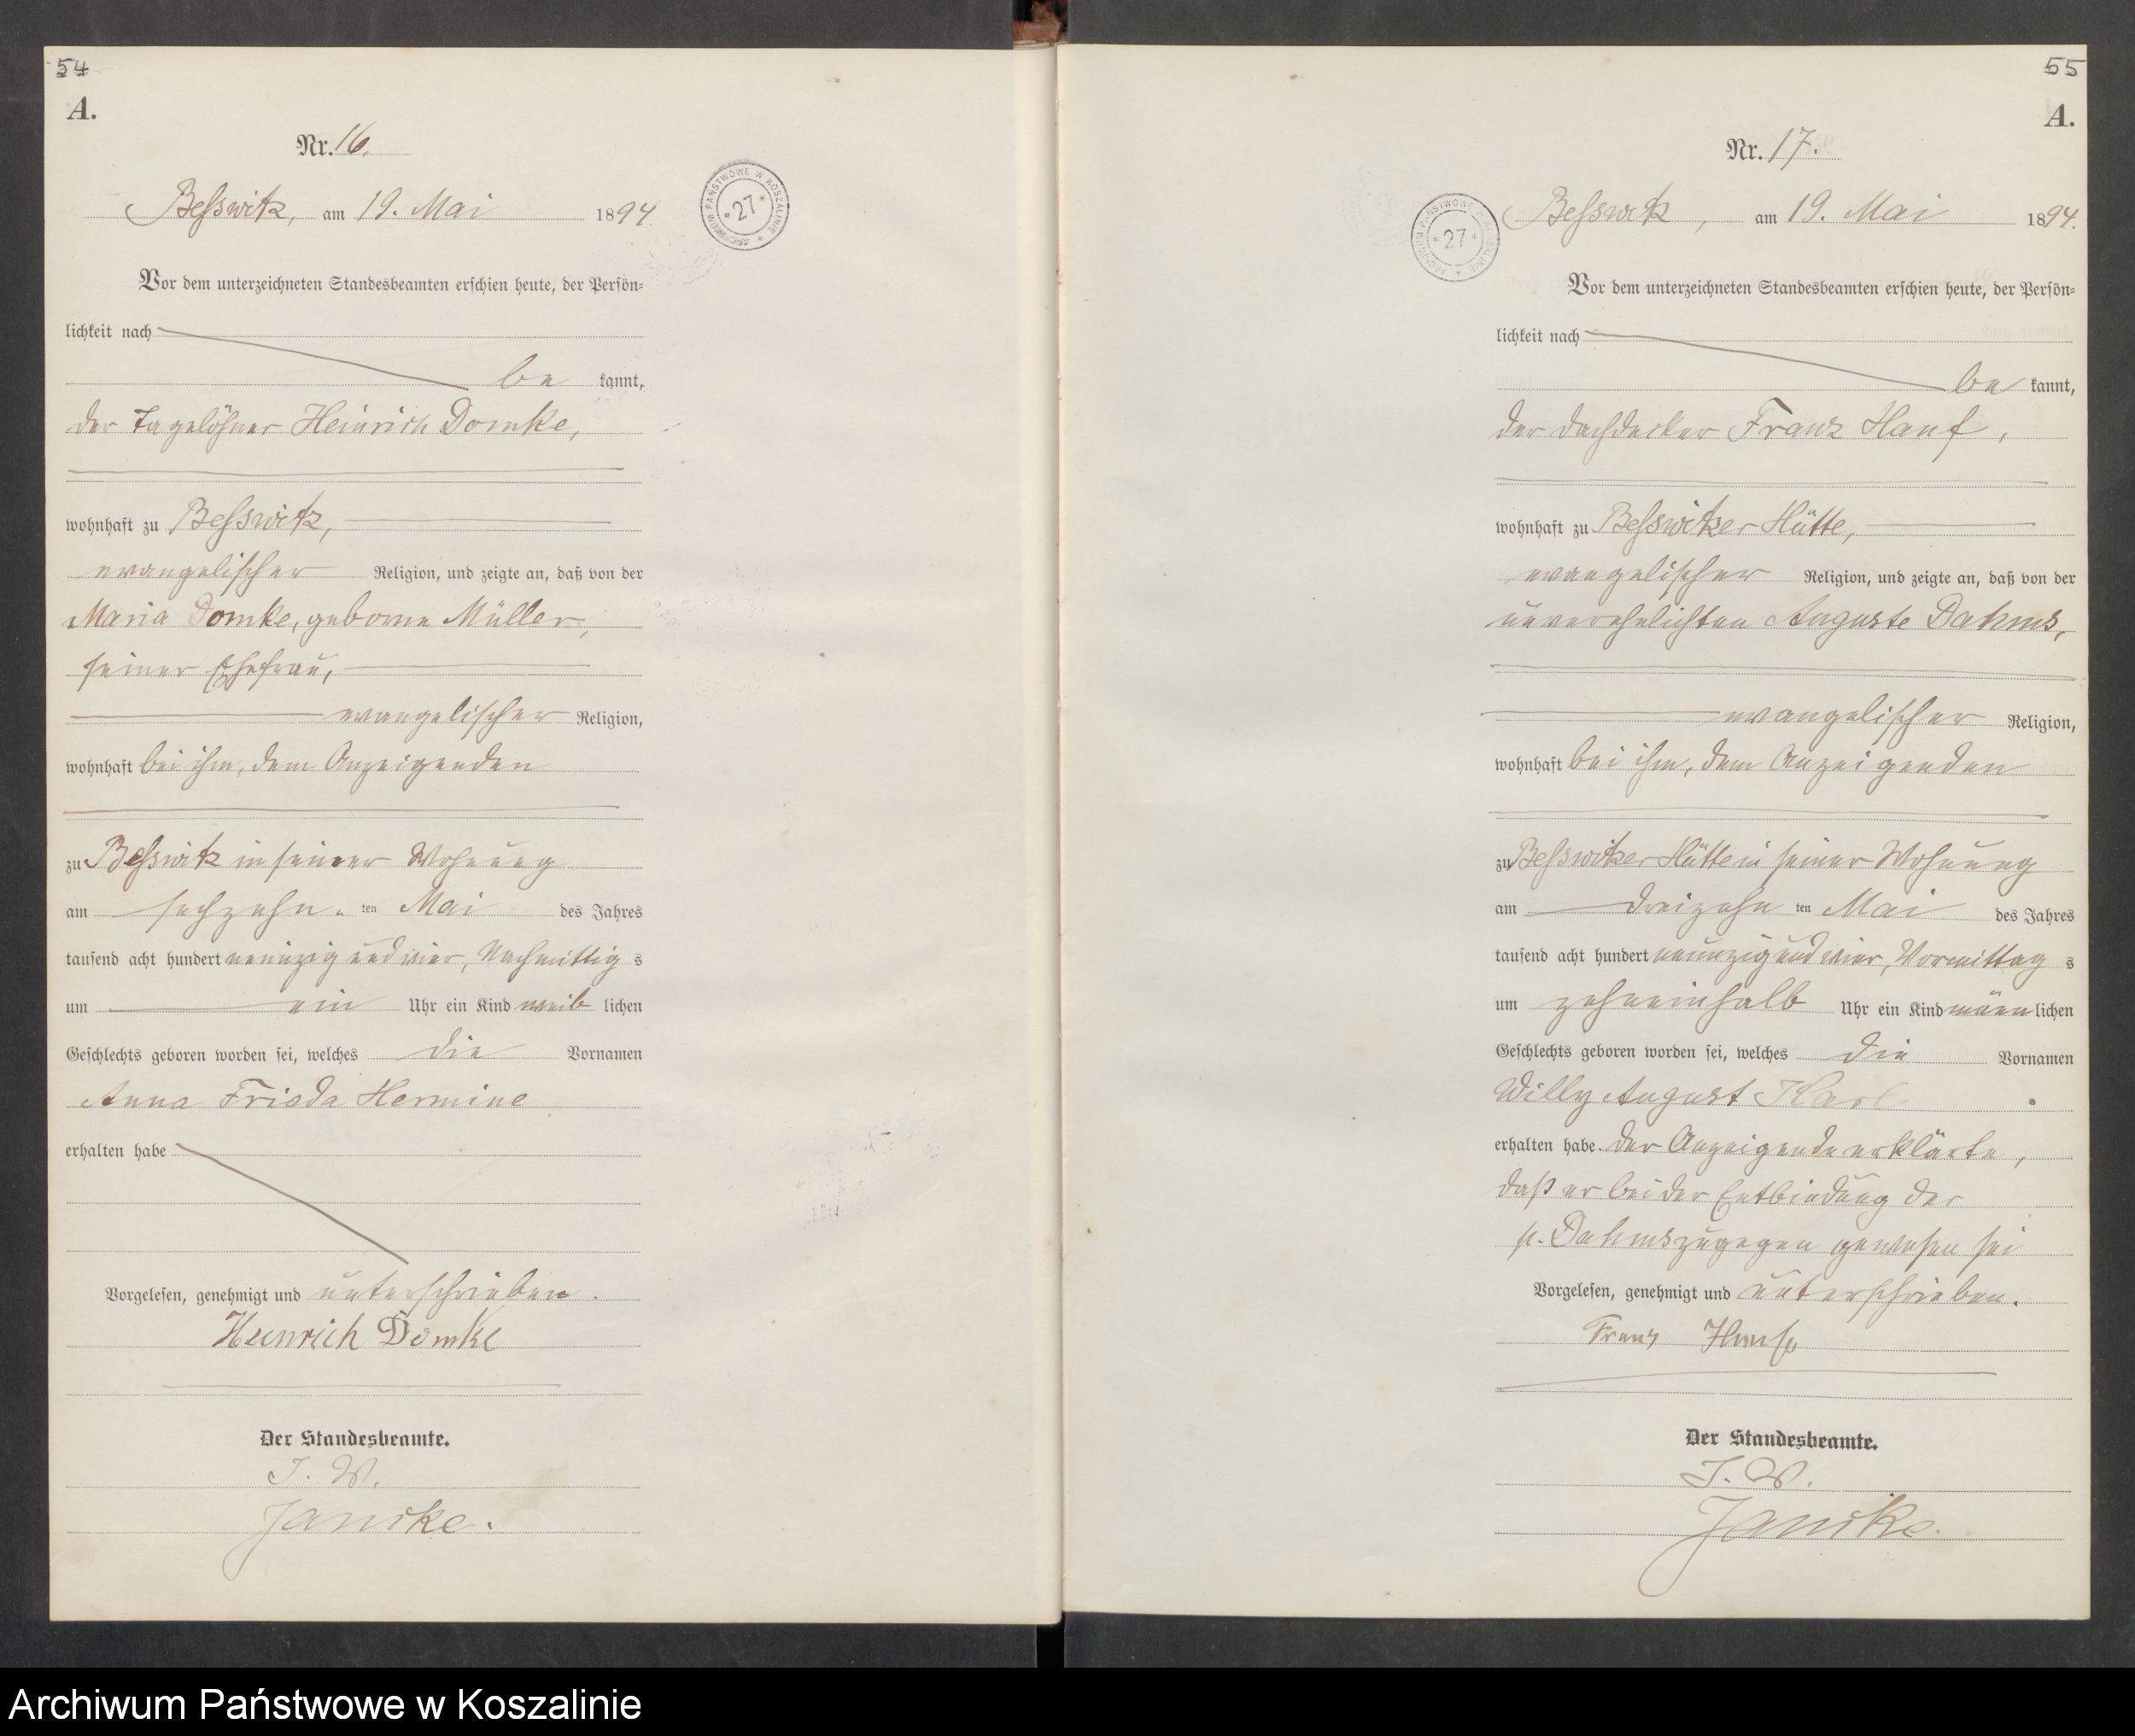 54
A.
Nr. 16.
Besswitz, am 19. Mai 1894.
ARCHIWUM PAŃSTWOWE W KOSZALINIE * 27 *
Vor dem unterzeichneten Standesbeamten erschien heute, der Persön-
lichkeit nach
be kannt,
der Tagelöhner Heinrich Domke,
wohnhaft zu Besswitz,
evangelischer Religion, und zeigte an, daß von der
Maria Domke, geborne Müller,
seiner Ehefrau,
evangelischer Religion,
wohnhaft bei ihm, dem Anzeigenden
zu Besswitz in seiner Wohnung
am sechzehn ten Mai des Jahres
tausend acht hundert neunzig und vier, Nachmittag s
um ein Uhr ein Kind weib lichen
Geschlechts geboren worden sei, welches die Vornamen
Anna Frieda Hermine
erhalten habe
Vorgelesen, genehmigt und unterschrieben.
Heinrich Domke
Der Standesbeamte.
J. V.
Janicke.
55
A.
Nr. 17.
Besswitz, am 19. Mai 1894.
ARCHIWUM PAŃSTWOWE W KOSZALINIE * 27 *
Vor dem unterzeichneten Standesbeamten erschien heute, der Persön-
lichkeit nach
be kannt,
der Dachdecker Franz Hanf,
wohnhaft zu Besswitzer Hütte,
evangelischer Religion, und zeigte an, daß von der
unverehelichten Auguste Dahms,
evangelischer Religion,
wohnhaft bei ihm, dem Anzeigenden
zu Besswitzer Hütte in seiner Wohnung
am dreizehn ten Mai des Jahres
tausend acht hundert neunzig und vier, Vormittag s
um zehneinhalb Uhr ein Kind männ lichen
Geschlechts geboren worden sei, welches die Vornamen
Willy August Karl
erhalten habe. Der Anzeigende erklärte,
daß er bei der Entbindung der
p. Dahms zugegen gewesen sei
Vorgelesen, genehmigt und unterschrieben.
Franz Hanf
Der Standesbeamte.
J. V.
Janicke.
Archiwum Państwowe w Koszalinie